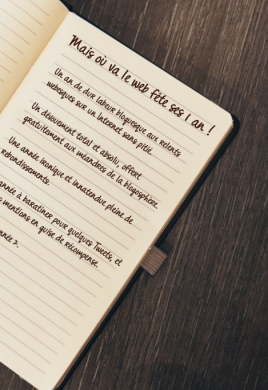 Mais où va le web fête ses 1 an !
Un an de dur labeur bloguesque aux relents
webesques sur un Internet sans pitié.
Un dévouement total et absolu, offert
gratuitement aux méandres de la blogosphère.
Une année ironique et innatendue pleine de
rebondissements.
année à baratiner pour quelques Tweets, et
mentions en guise de récompense.